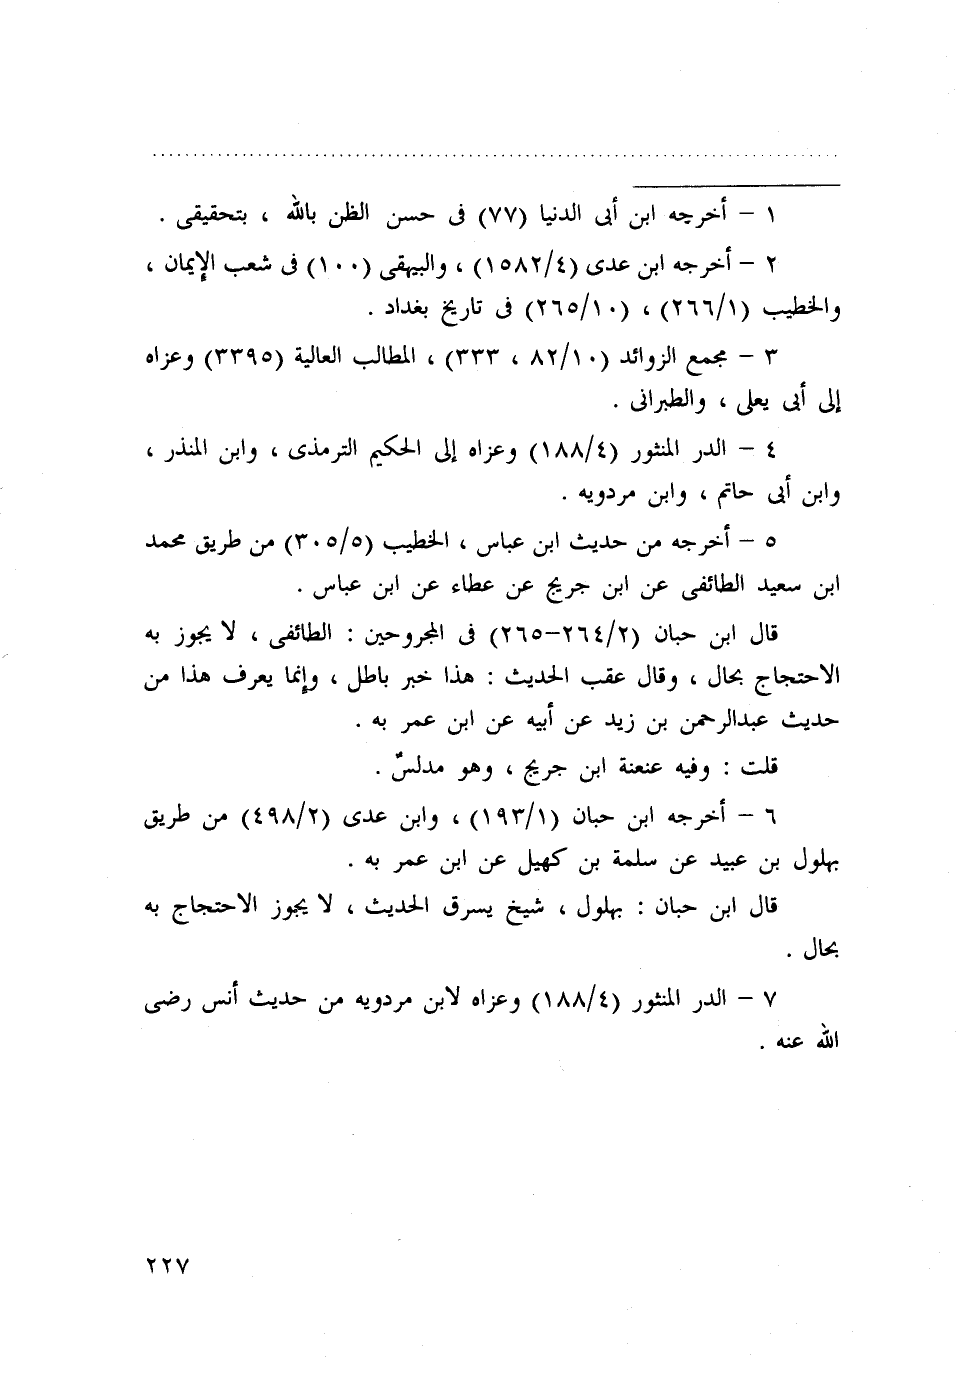 ١ – أخرجه ابن أبى الدنيا (٧٧) فى حسن الظن بالله ، بتحقيقى .
٢ – أخرجه ابن عدى (١٥٨٢/٤) ، والبيهقى (١٠٠) فى شعب الإيمان ،
والخطيب (٢٦٦/١) ، (٢٦٥/١٠) فى تاريخ بغداد .
٣ – مجمع الزوائد (٨٢/١٠ ، ٣٣٣) ، المطالب العالية (٣٣٩٥) وعزاه
إلى أبى يعلى ، والطبرانى .
٤ – الدر المنثور (١٨٨/٤) وعزاه إلى الحكيم الترمذى ، وابن المنذر ،
وابن أبى حاتم ، وابن مردويه .
٥ – أخرجه من حديث ابن عباس ، الخطيب (٣٠٥/٥) من طريق محمد
ابن سعيد الطائفى عن ابن جريج عن عطاء عن ابن عباس .
قال ابن حبان (٢٦٤/٢–٢٦٥) فى المجروحين : الطائفى ، لا يجوز به
الاحتجاج بحال ، وقال عقب الحديث : هذا خبر باطل ، وإنما يعرف هذا من
حديث عبدالرحمن بن زيد عن أبيه عن ابن عمر به .
قلت : وفيه عنعنة ابن جريج ، وهو مدلسٌ .
٦ – أخرجه ابن حبان (١٩٣/١) ، وابن عدى (٤٩٨/٢) من طريق
بهلول بن عبيد عن سلمة بن كهيل عن ابن عمر به .
قال ابن حبان : بهلول ، شيخ يسرق الحديث ، لا يجوز الاحتجاج به
بحال .
٧ – الدر المنثور (١٨٨/٤) وعزاه لابن مردويه من حديث أنس رضى
الله عنه .
٢٢٧